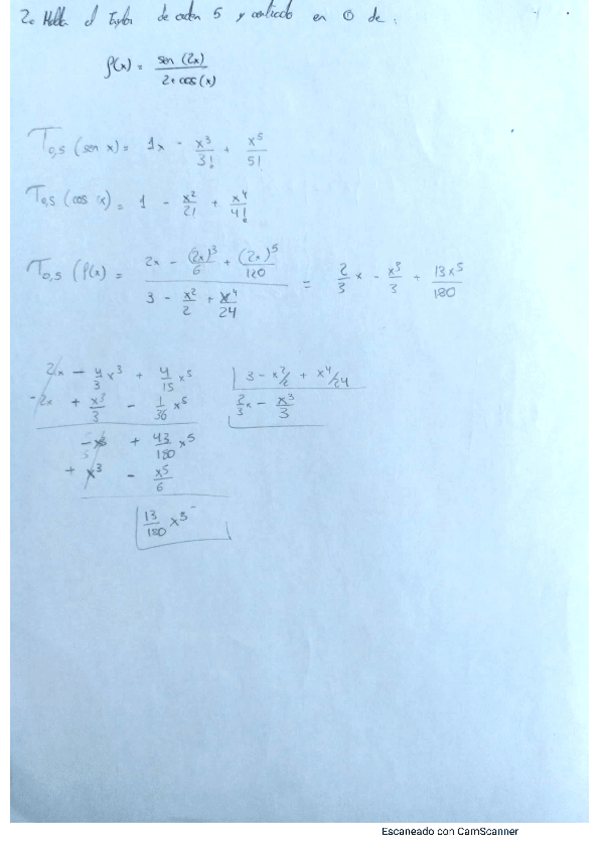 2. Halla el Taylor de orden 5 y centrado en 0 de:
f(x) = sen (2x) / 2+cos(x)
T0,5 (sen x) = 1x - x^3/3! + x^5/5!
T0,5 (cos x) = 1 - x^2/2! + x^4/4!
T0,5 (f(x) = (2x - (2x)^3/6 + (2x)^5/120) / (3 - x^2/2 + x^4/24) = 2/3 x - x^3/3 + 13x^5/180
2x - 4/3 x^3 + 4/15 x^5 | 3 - x^2/2 + x^4/24
-2x + x^3/3 - 1/36 x^5 2/3 x - x^3/3
-x^3 + 43/180 x^5
+ x^3 - x^5/6
13/180 x^5
Escaneado con CamScanner